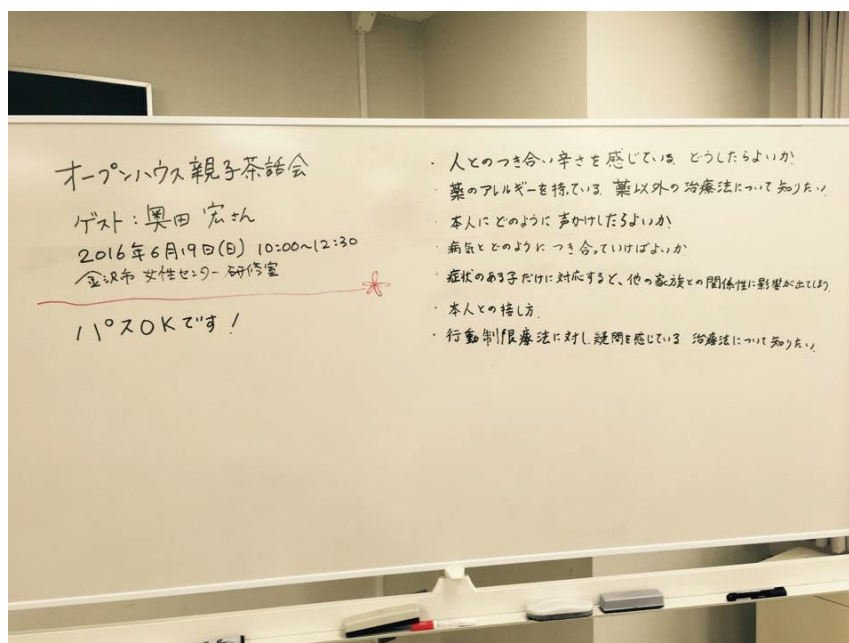 オープンハウス親子茶話会
ゲスト:奥田 宏さん
2016年6月19日(日) 10:00~12:30
金沢市 女性センター 研修室
パスOKです!
・人とのつき合い辛さを感じている どうしたらよいか?
・薬のアレルギーを持っている 薬以外の治療法について知りたい
・本人にどのように声かけしたらよいか?
・病気とどのようにつき合っていけばよいか
・症状のある子だけに対応すると、他の家族との関係性に影響が出てしまう
・本人との接し方
・行動制限療法に対し疑問を感じている 治療法について知りたい